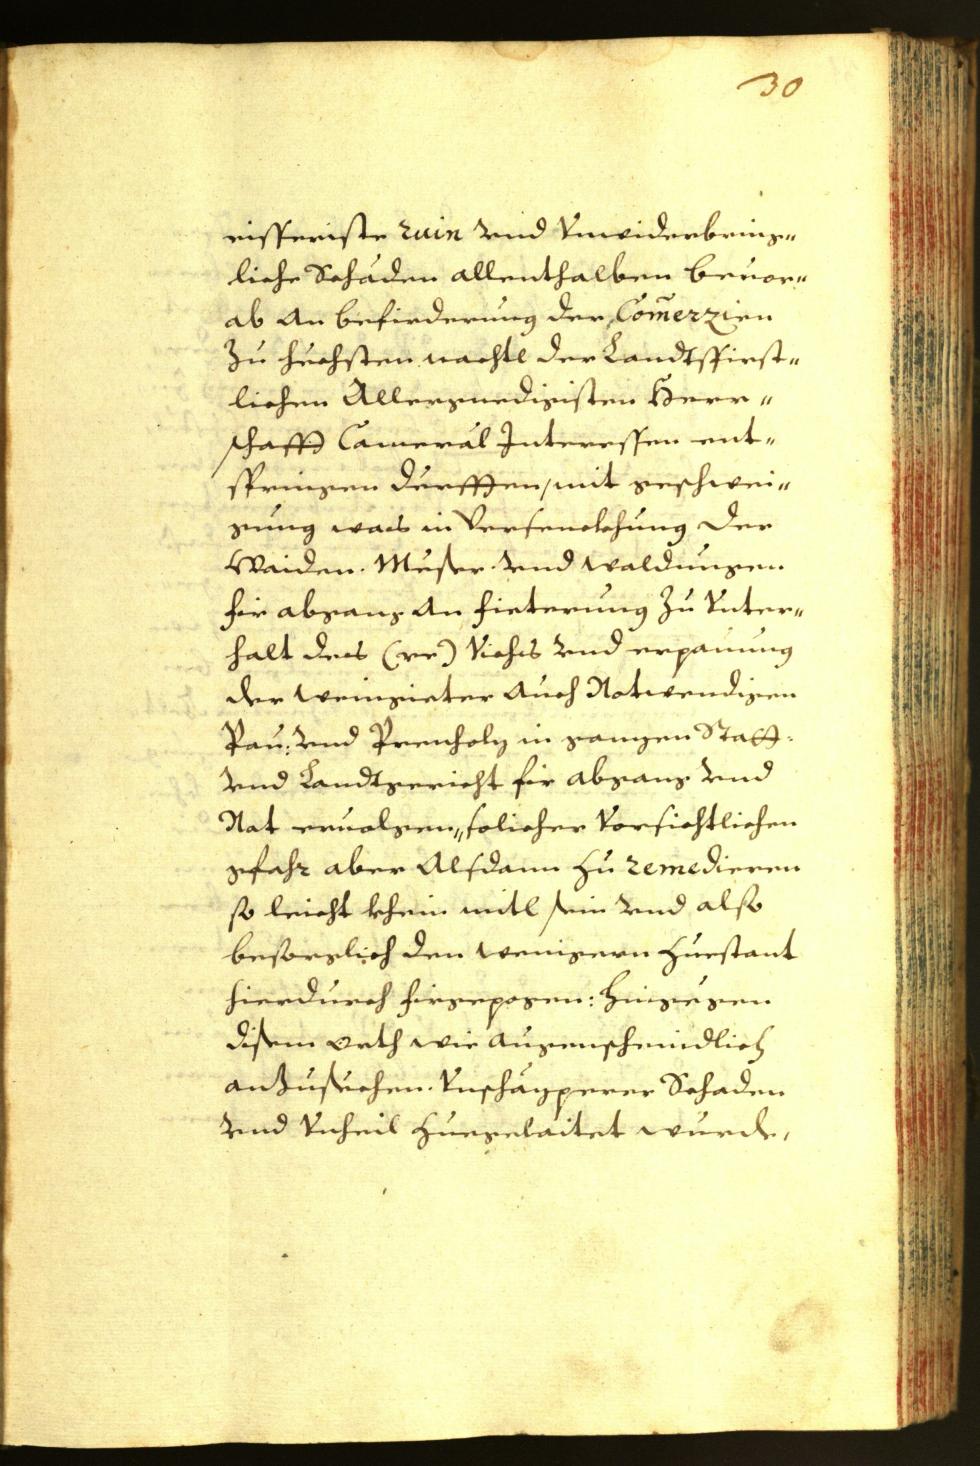 30
eisseriste ruin vnd Vnwiderbring„
liche Schäden allenthalben beuor„
ab an befirderung der Com̃erzien
Zu hechsten nachtl der Landtsfirst„
lichen Allergnedigisten Herr„
schafft Camerál Interessen ent„
springen durfften, mit geschwei„
gung was in Versenckhung der
Waiden. Meßer. vnd waldungen
fir abgang an fieterung Zu Vnter„
halt des (rr) Vichs vnd erpauung
der weingieter auch Notwendigen
Pau: vnd Prenholz in ganzen Statt:
vnd Landtgericht fir abgang vnd
Not eruolgen„ solicher Vorsichtlichen
gfahr aber Alsdann zu remedieren
so leicht khein mitl sein vnd also
besorglich den wenigern Zuestant
hierdurch firgepogen: hingegen
disem orth wie augenscheindlich
anzusuehen. Vnschäzperer Schaden
vnd Vnheil Zuegelaitet wurde,